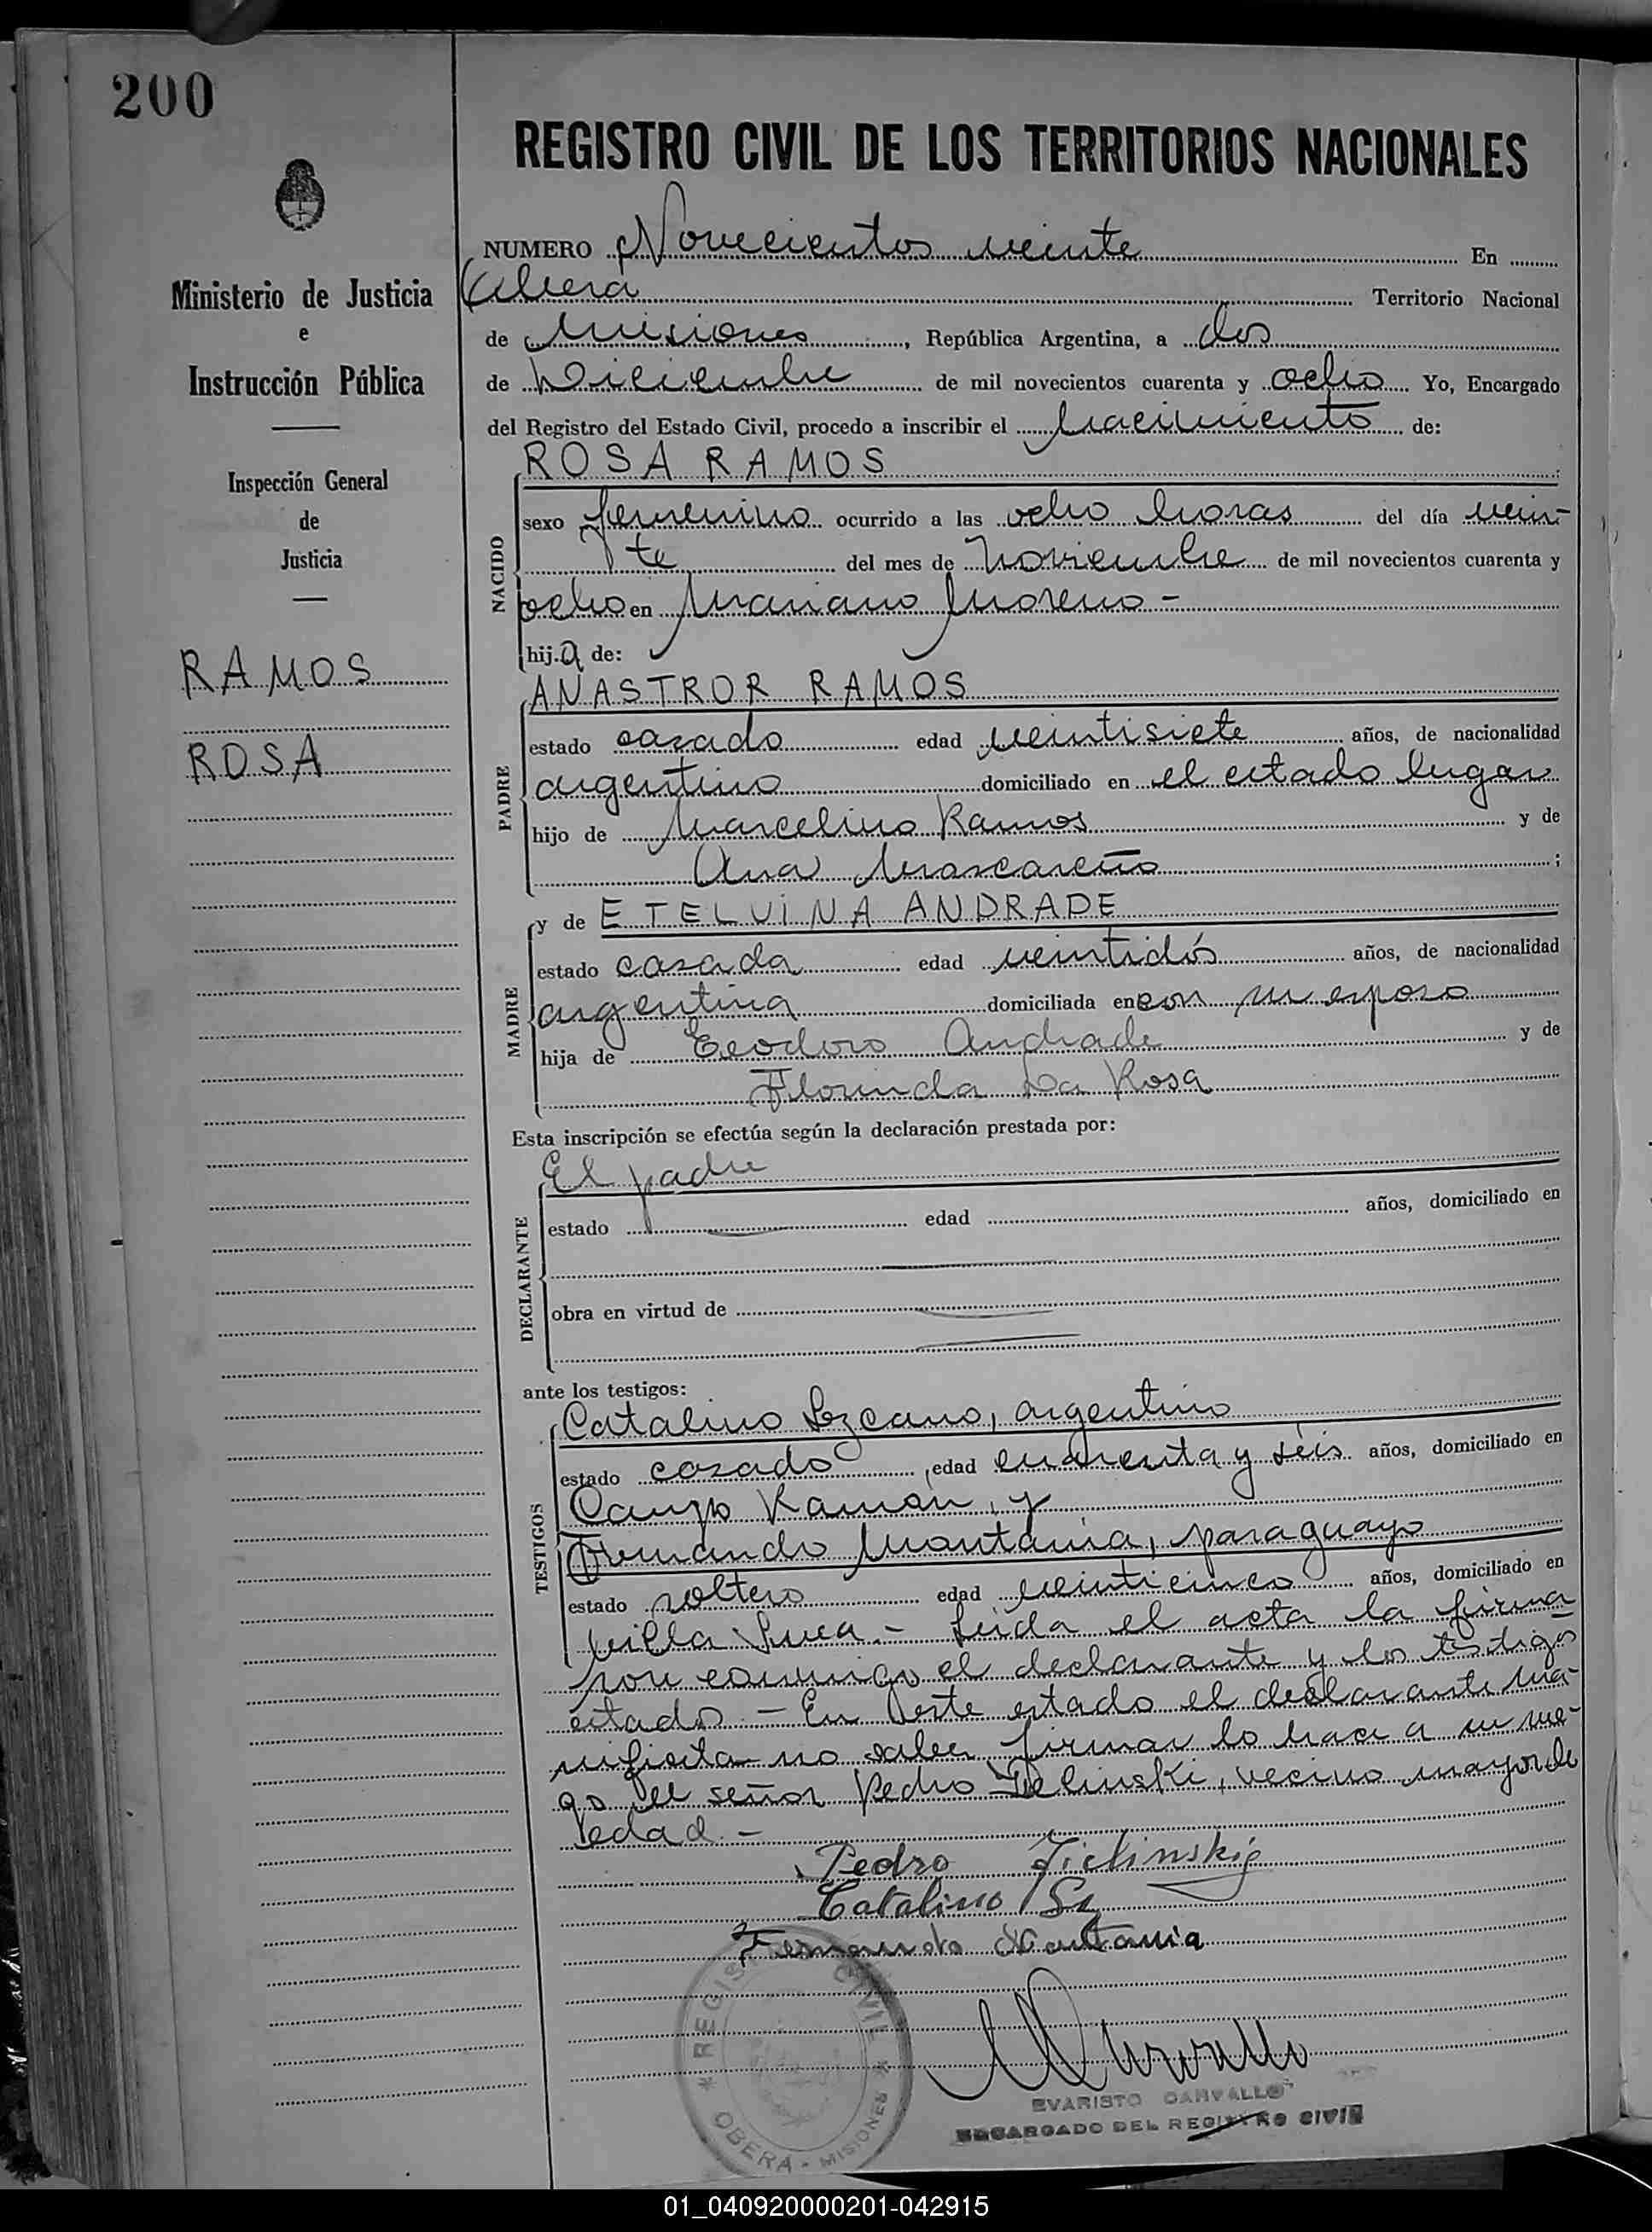 200
REGISTRO CIVIL DE LOS TERRITORIOS NACIONALES
Ministerio de Justicia
e
Instrucción Pública
Inspección General
de
Justicia
RAMOS
ROSA
NUMERO Novecientos veinte En
Oberá Territorio Nacional
de Misiones, República Argentina, a dos
de Diciembre de mil novecientos cuarenta y ocho Yo, Encargado
del Registro del Estado Civil, procedo a inscribir el Nacimiento de:
NACIDO
ROSA RAMOS
sexo femenino ocurrido a las ocho horas del día vein-
te del mes de Noviembre de mil novecientos cuarenta y
ocho en Mariano Moreno -
hija de:
PADRE
ANASTROR RAMOS
estado casado edad veintisiete años, de nacionalidad
argentino domiciliado en el citado lugar
hijo de Marcelino Ramos y de
Ana Mascareño ;
MADRE
y de ETELVINA ANDRADE
estado casada edad veintidós años, de nacionalidad
argentina domiciliada en con su esposo
hija de Teodoro Andrade y de
Florinda Da Rosa
Esta inscripción se efectúa según la declaración prestada por:
DECLARANTE
El padre
estado edad años, domiciliado en
obra en virtud de
ante los testigos:
TESTIGOS
Catalino Lezcano, argentino
estado casado, edad cuarenta y séis años, domiciliado en
Campo Ramón, y
Fernando Montania, paraguayo
estado soltero edad veinticinco años, domiciliado en
Villa Svea.- Leida el acta la firma
por conmigo el declarante y los testigos
citados.- En este estado el declarante ma-
nifiesta no saber firmar lo hace a su rue-
go el señor Pedro Zielinski, vecino mayor de
edad.-
Pedro Zielinski
Catalino
Fernando Montania
REGISTRO CIVIL
OBERA - MISIONES
EVARISTO CARVALLO
ENCARGADO DEL REGISTRO CIVIL
01_040920000201-042915